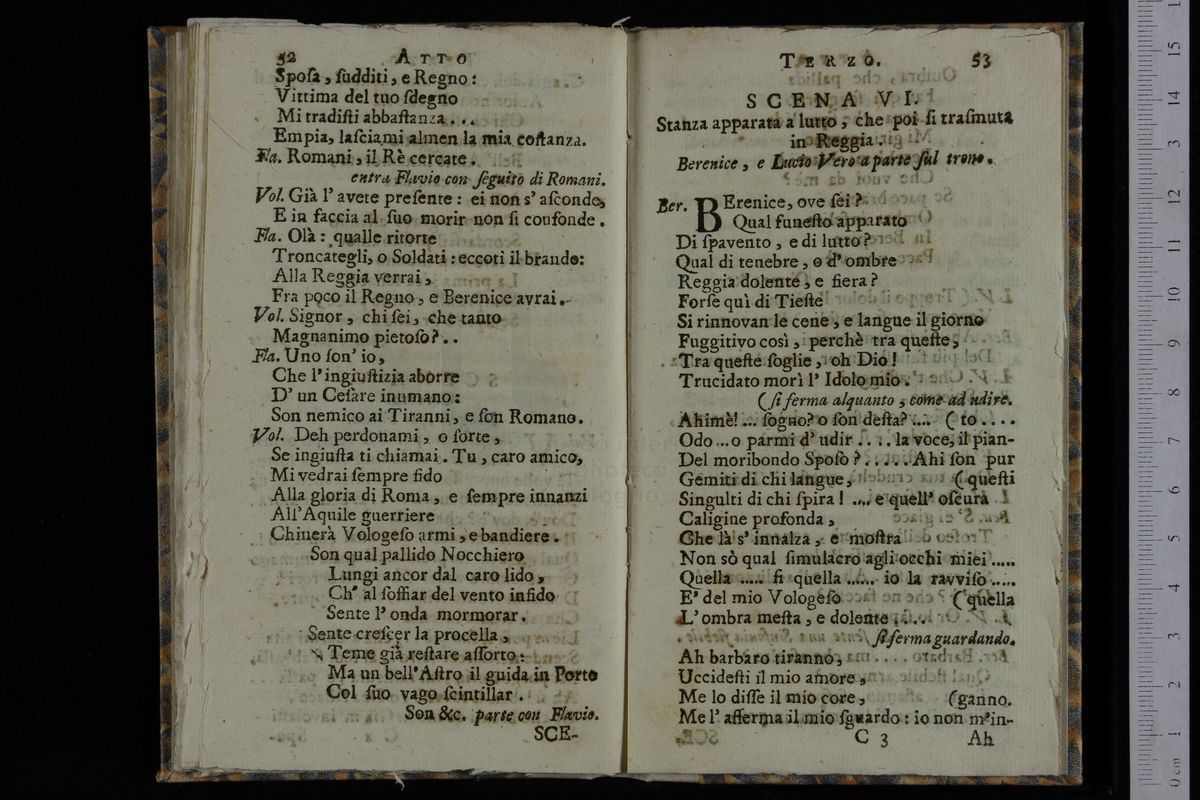 52 ATTO
Sposa, sudditi, e Regno:
Vittima del tuo sdegno
Mi tradisti abbastanza...
Empia, lasciami almen la mia costanza.
Fla. Romani, il Rè cercate.
entra Flavio con seguito di Romani.
Vol. Già l'avete presente: ei non s'asconde,
E in faccia al suo morir non si confonde.
Fla. Olà: qualle ritorte
Troncategli, o Soldati: eccoti il brando:
Alla Reggia verrai,
Fra poco il Regno, e Berenice avrai.
Vol. Signor, chi sei, che tanto
Magnanimo pietoso?..
Fla. Uno son' io,
Che l'ingiustizia aborre
D'un Cesare inumano:
Son nemico ai Tiranni, e son Romano.
Vol. Deh perdonami, o sorte,
Se ingiusta ti chiamai. Tu, caro amico,
Mi vedrai sempre fido
Alla gloria di Roma, e sempre innanzi
All'Aquile guerriere
Chinerà Vologeso armi, e bandiere.
Son qual pallido Nocchiero
Lungi ancor dal caro lido,
Ch' al soffiar del vento infido
Sente l'onda mormorar.
Sente crescer la procella,
Teme già restare assorto:
Ma un bell'Astro il guida in Porto
Col suo vago scintillar.
Son &c. parte con Flavio.
SCE-
TERZO. 53
SCENA VI.
Stanza apparata a lutto, che poi si trasmuta
in Reggia.
Berenice, e Lucio Vero a parte sul trono.
Ber. BErenice, ove sei?
Qual funesto apparato
Di spavento, e di lutto?
Qual di tenebre, o d'ombre
Reggia dolente, e fiera?
Forse quì di Tieste
Si rinnovan le cene, e langue il giorno
Fuggitivo così, perchè tra queste,
Tra queste soglie, oh Dio!
Trucidato morì l'Idolo mio.
(si ferma alquanto, come ad udire.
Ahimè!... sogno? o son desta?.... (to....
Odo...o parmi d'udir....la voce, il pian-
Del moribondo Sposo?.....Ahi son pur
Gemiti di chi langue, (questi
Singulti di chi spira!....e quell'oscura
Caligine profonda,
Che là s'innalza, e mostra
Non sò qual simulacro agli occhi miei.....
Quella..... si quella...... io la ravviso.....
E' del mio Vologeso (quella
L'ombra mesta, e dolente....
si ferma guardando.
Ah barbaro tiranno,
Uccidesti il mio amore,
Me lo disse il mio core, (ganno.
Me l'afferma il mio sguardo: io non m'in-
C 3 Ah